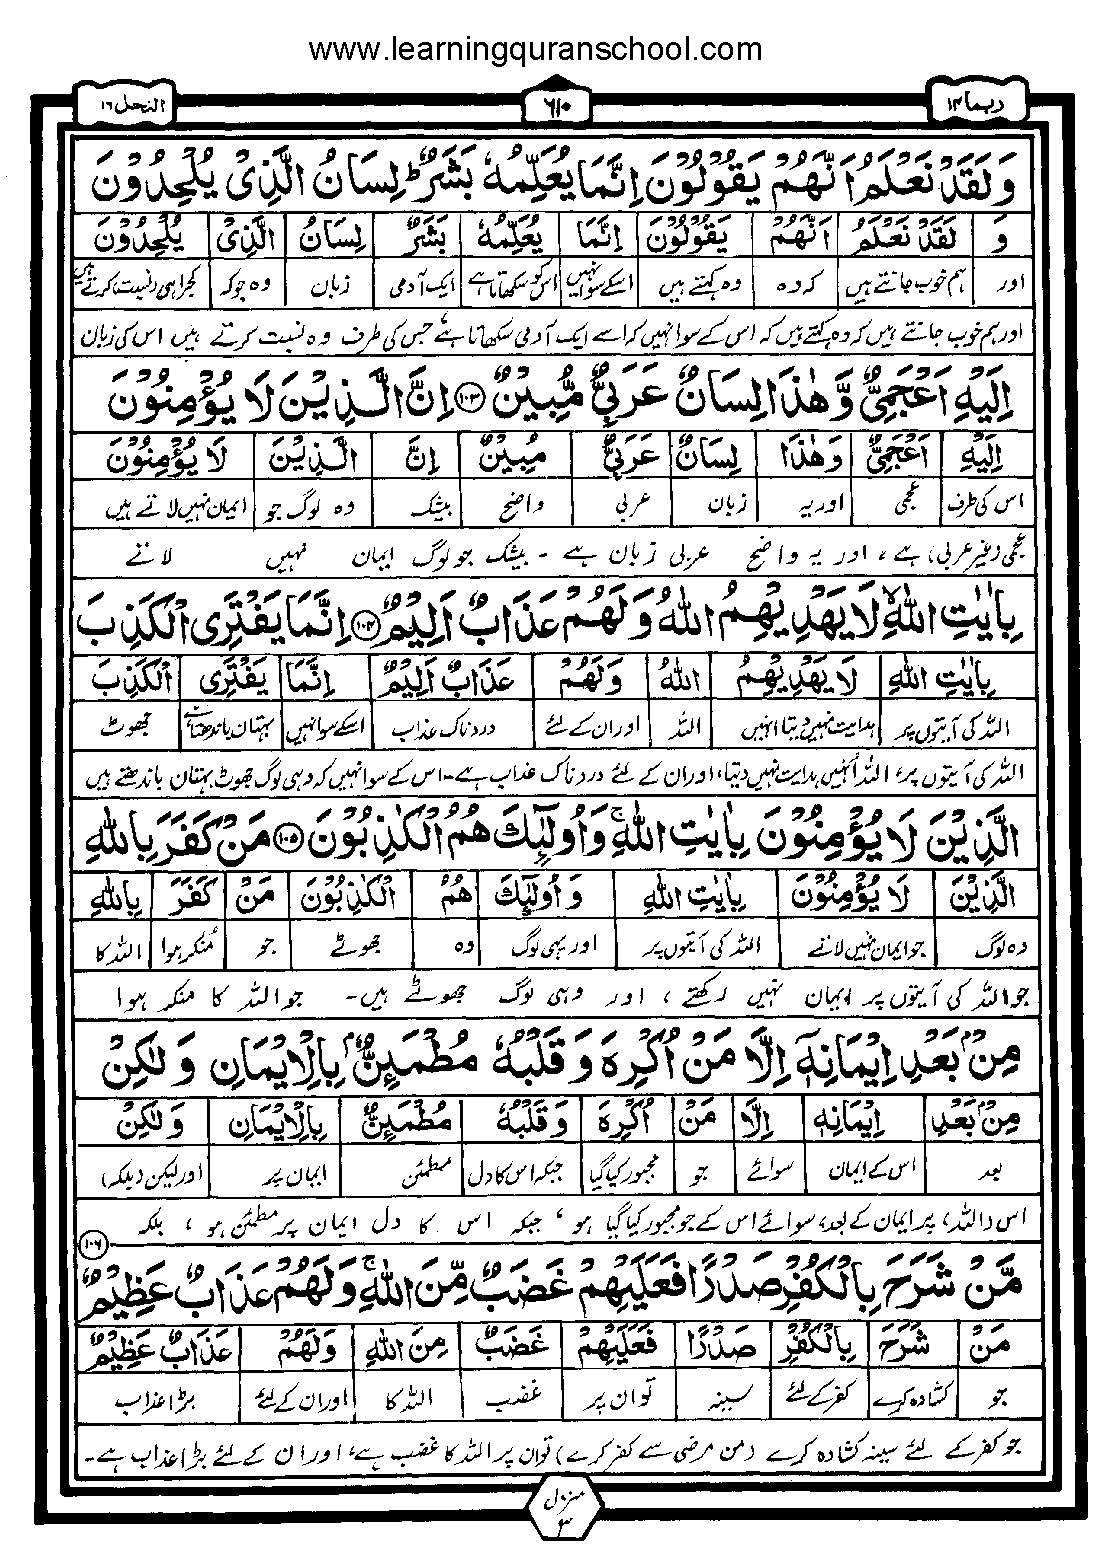 www.learningquranschool.com
ربما ۱۴ ۶۱۰ النحل ۱۶
وَ لَقَدْ نَعْلَمُ اَنَّهُمْ یَقُوْلُوْنَ اِنَّمَا یُعَلِّمُهٗ بَشَرٌ ؕ لِسَانُ الَّذِیْ یُلْحِدُوْنَ
وَ لَقَدْ نَعْلَمُ اَنَّهُمْ یَقُوْلُوْنَ اِنَّمَا یُعَلِّمُهٗ بَشَرٌ لِسَانُ الَّذِیْ یُلْحِدُوْنَ
اور ہم خوب جانتے ہیں کہ وہ وہ کہتے ہیں اسکے سوا نہیں اس کو سکھاتا ہے ایک آدمی زبان وہ جو کہ کجراہی (نسبت) کرتے ہیں
اور ہم خوب جانتے ہیں کہ وہ کہتے ہیں کہ اس کے سوا نہیں کہ اسے ایک آدمی سکھاتا ہے، جس کی طرف وہ نسبت کرتے ہیں اس کی زبان
اِلَیْهِ اَعْجَمِیٌّ وَّ هٰذَا لِسَانٌ عَرَبِیٌّ مُّبِیْنٌ ۱۰۳ اِنَّ الَّذِیْنَ لَا یُؤْمِنُوْنَ
اِلَیْهِ اَعْجَمِیٌّ وَ هٰذَا لِسَانٌ عَرَبِیٌّ مُبِیْنٌ اِنَّ الَّذِیْنَ لَا یُؤْمِنُوْنَ
اس کی طرف عجمی اور یہ زبان عربی واضح بیشک وہ لوگ جو ایمان نہیں لاتے ہیں
عجمی (غیر عربی) ہے، اور یہ واضح عربی زبان ہے ۔ بیشک جو لوگ ایمان نہیں لاتے
بِاٰیٰتِ اللّٰهِ ۙ لَا یَهْدِیْهِمُ اللّٰهُ وَ لَهُمْ عَذَابٌ اَلِیْمٌ ۱۰۴ اِنَّمَا یَفْتَرِی الْكَذِبَ
بِاٰیٰتِ اللّٰهِ لَا یَهْدِیْهِمُ اللّٰهُ وَ لَهُمْ عَذَابٌ اَلِیْمٌ اِنَّمَا یَفْتَرِی الْكَذِبَ
اللہ کی آیتوں پر ہدایت نہیں دیتا انہیں اللہ اور ان کے لئے دردناک عذاب اسکے سوا نہیں بہتان باندھتا ہے جھوٹ
اللہ کی آیتوں پر، اللہ اُنہیں ہدایت نہیں دیتا، اور ان کے لئے دردناک عذاب ہے ۔ اس کے سوا نہیں کہ وہی لوگ جھوٹ بہتان باندھتے ہیں
الَّذِیْنَ لَا یُؤْمِنُوْنَ بِاٰیٰتِ اللّٰهِ ۚ وَ اُولٰٓئِكَ هُمُ الْكٰذِبُوْنَ ۱۰۵ مَنْ كَفَرَ بِاللّٰهِ
الَّذِیْنَ لَا یُؤْمِنُوْنَ بِاٰیٰتِ اللّٰهِ وَ اُولٰٓئِكَ هُمُ الْكٰذِبُوْنَ مَنْ كَفَرَ بِاللّٰهِ
وہ لوگ جو ایمان نہیں لاتے اللہ کی آیتوں پر اور یہی لوگ وہ جھوٹے جو مُنکر ہوا اللہ کا
جو اللہ کی آیتوں پر ایمان نہیں رکھتے، اور وہی لوگ جھوٹے ہیں ۔ جو اللہ کا منکر ہوا
مِنْۢ بَعْدِ اِیْمَانِهٖۤ اِلَّا مَنْ اُكْرِهَ وَ قَلْبُهٗ مُطْمَىِٕنٌّۢ بِالْاِیْمَانِ وَ لٰكِنْ
مِنْۢ بَعْدِ اِیْمَانِهٖ اِلَّا مَنْ اُكْرِهَ وَ قَلْبُهٗ مُطْمَىِٕنٌّ بِالْاِیْمَانِ وَ لٰكِنْ
بعد اس کے ایمان سوائے جو مجبور کیا گیا جبکہ اس کا دل مطمئن ایمان پر اور لیکن (بلکہ)
اس (اللہ) پر ایمان کے بعد، سوائے اس کے جو مجبور کیا گیا ہو، جبکہ اس کا دل ایمان پر مطمئن ہو، بلکہ
مَّنْ شَرَحَ بِالْكُفْرِ صَدْرًا فَعَلَیْهِمْ غَضَبٌ مِّنَ اللّٰهِ ۚ وَ لَهُمْ عَذَابٌ عَظِیْمٌ ۱۰۶
مَنْ شَرَحَ بِالْكُفْرِ صَدْرًا فَعَلَیْهِمْ غَضَبٌ مِنَ اللّٰهِ وَ لَهُمْ عَذَابٌ عَظِیْمٌ
جو کشادہ کرے کفر کے لئے سینہ تو ان پر غضب اللہ کا اور ان کے لئے بڑا عذاب
جو کفر کے لئے سینہ کشادہ کرے (من مرضی سے کفر کرے) تو ان پر اللہ کا غضب ہے، اور ان کے لئے بڑا عذاب ہے ۔
منزل ۳